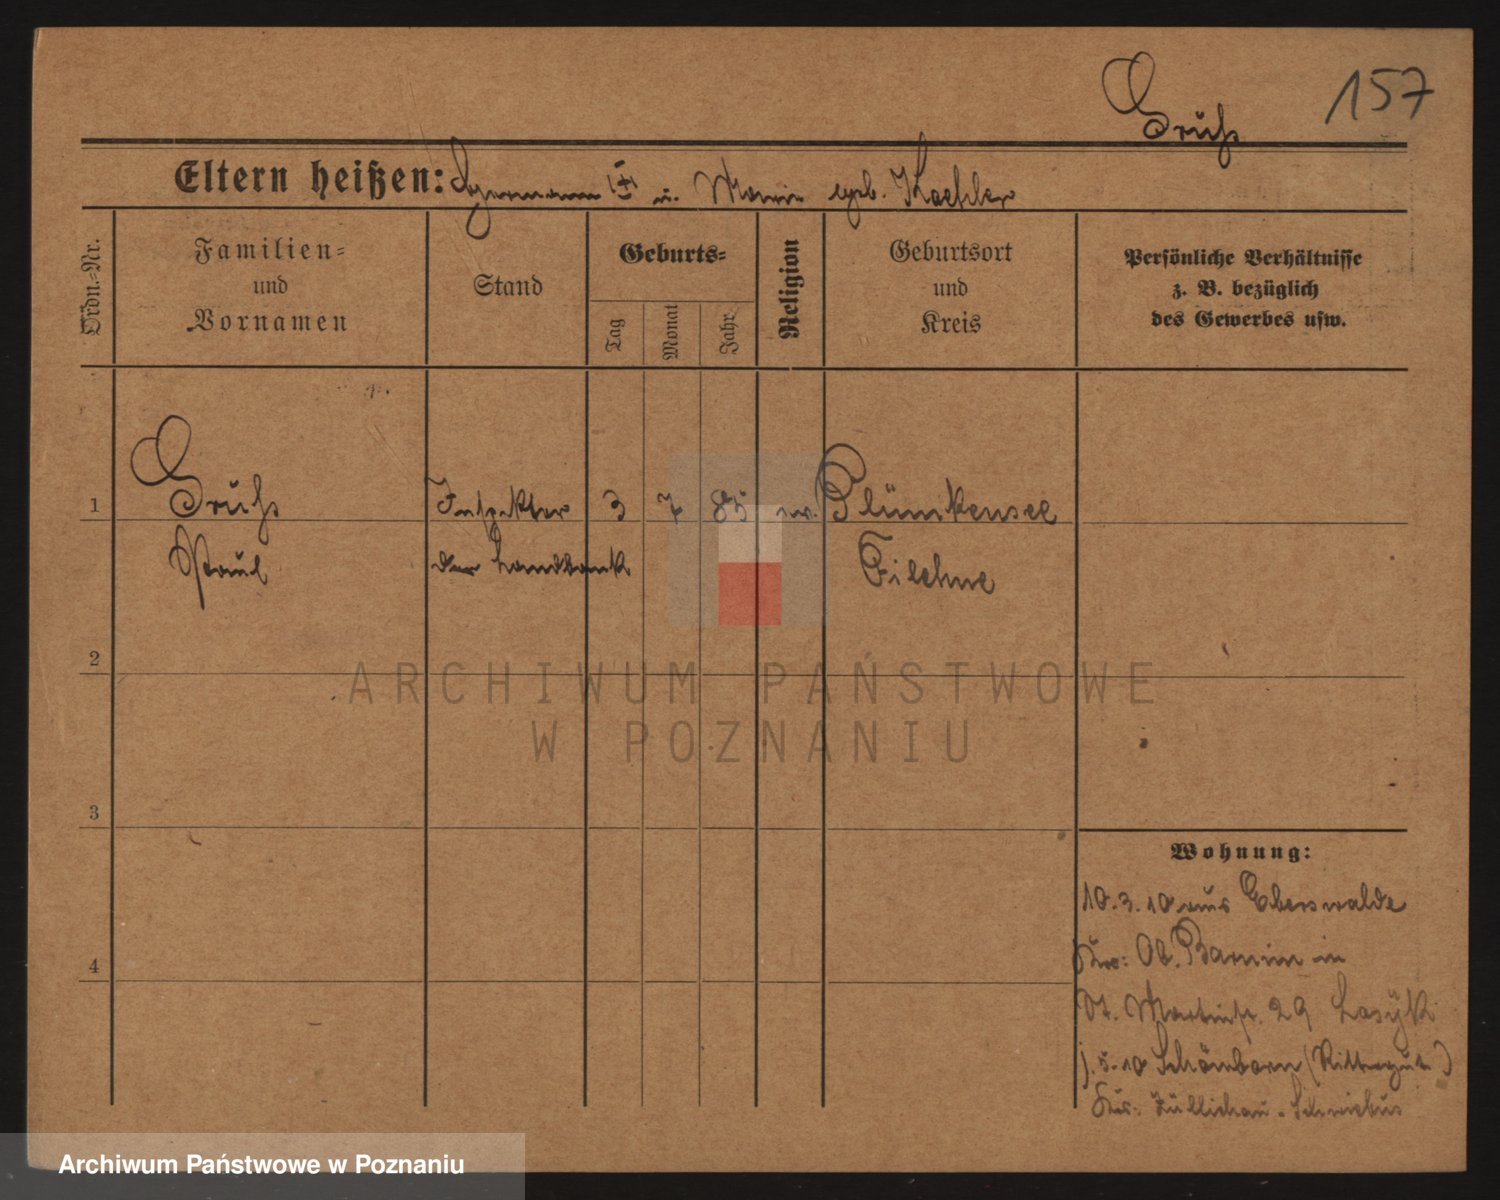 157
Gruhs
Eltern heißen: Hermann [+] u. Marie geb. Koehler
Ordn.-Nr.
Familien-
und
Vornamen
Stand
Geburts-
Tag
Monat
Jahr
Religion
Geburtsort
und
Kreis
Persönliche Verhältnisse
z. B. bezüglich
des Gewerbes usw.
1 Gruhs Inspektor 3 7 85 ev. Plümkensee
Paul der Landbank Filehne
2
3
4
ARCHIWUM PAŃSTWOWE
W POZNANIU
Wohnung:
10.3.10 aus Eberswalde
Krs: Ob. Barnim in
St. Martinstr. 29
5.10 Schönborn (Rittergut)
Krs: Züllichau-Schwiebus
Archiwum Państwowe w Poznaniu